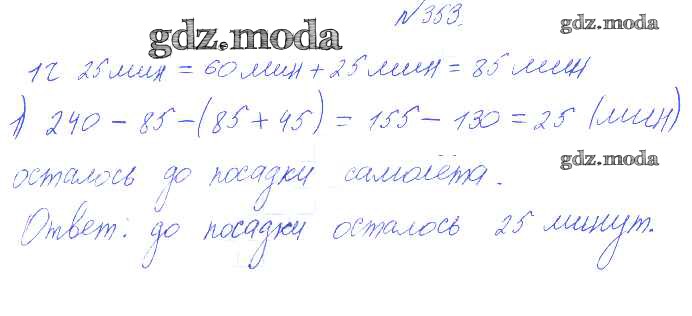 №353.
gdz.moda
gdz.moda
1ч 25мин = 60мин + 25мин = 85мин
1) 240 - 85 - (85 + 45) = 155 - 130 = 25 (мин)
gdz.moda
осталось до посадки самолёта.
Ответ: до посадки осталось 25 минут.